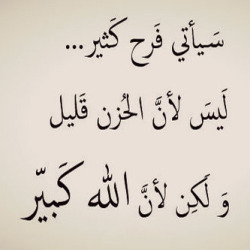 سَيأتي فَرح كَثير...
لَيسَ لأنَّ الحُزن قَليل
وَ لَكِن لأنَّ الله كَبيّر